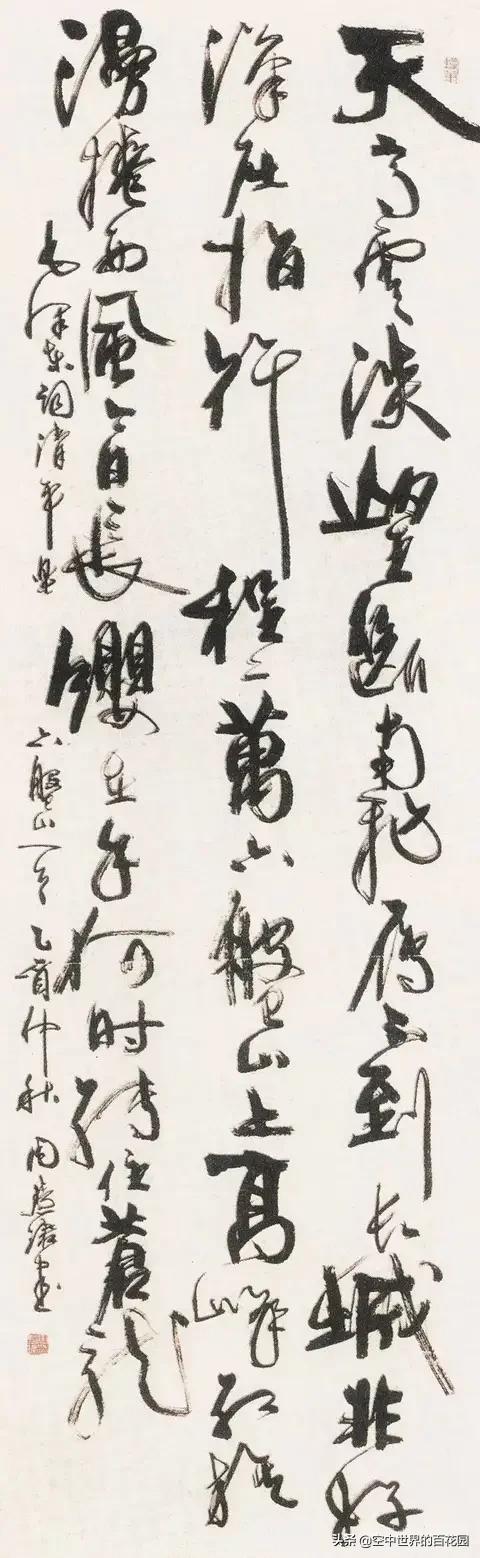 天高雲淡望斷南飛雁不到长城非好
漢屈指行程二萬六盤山上高峰红旗
漫捲西風今日長纓在手何时縛住蒼龍
毛泽东词清平乐六盤山一首乙酉仲秋周慧珺书
头条 @空中世界的百花园